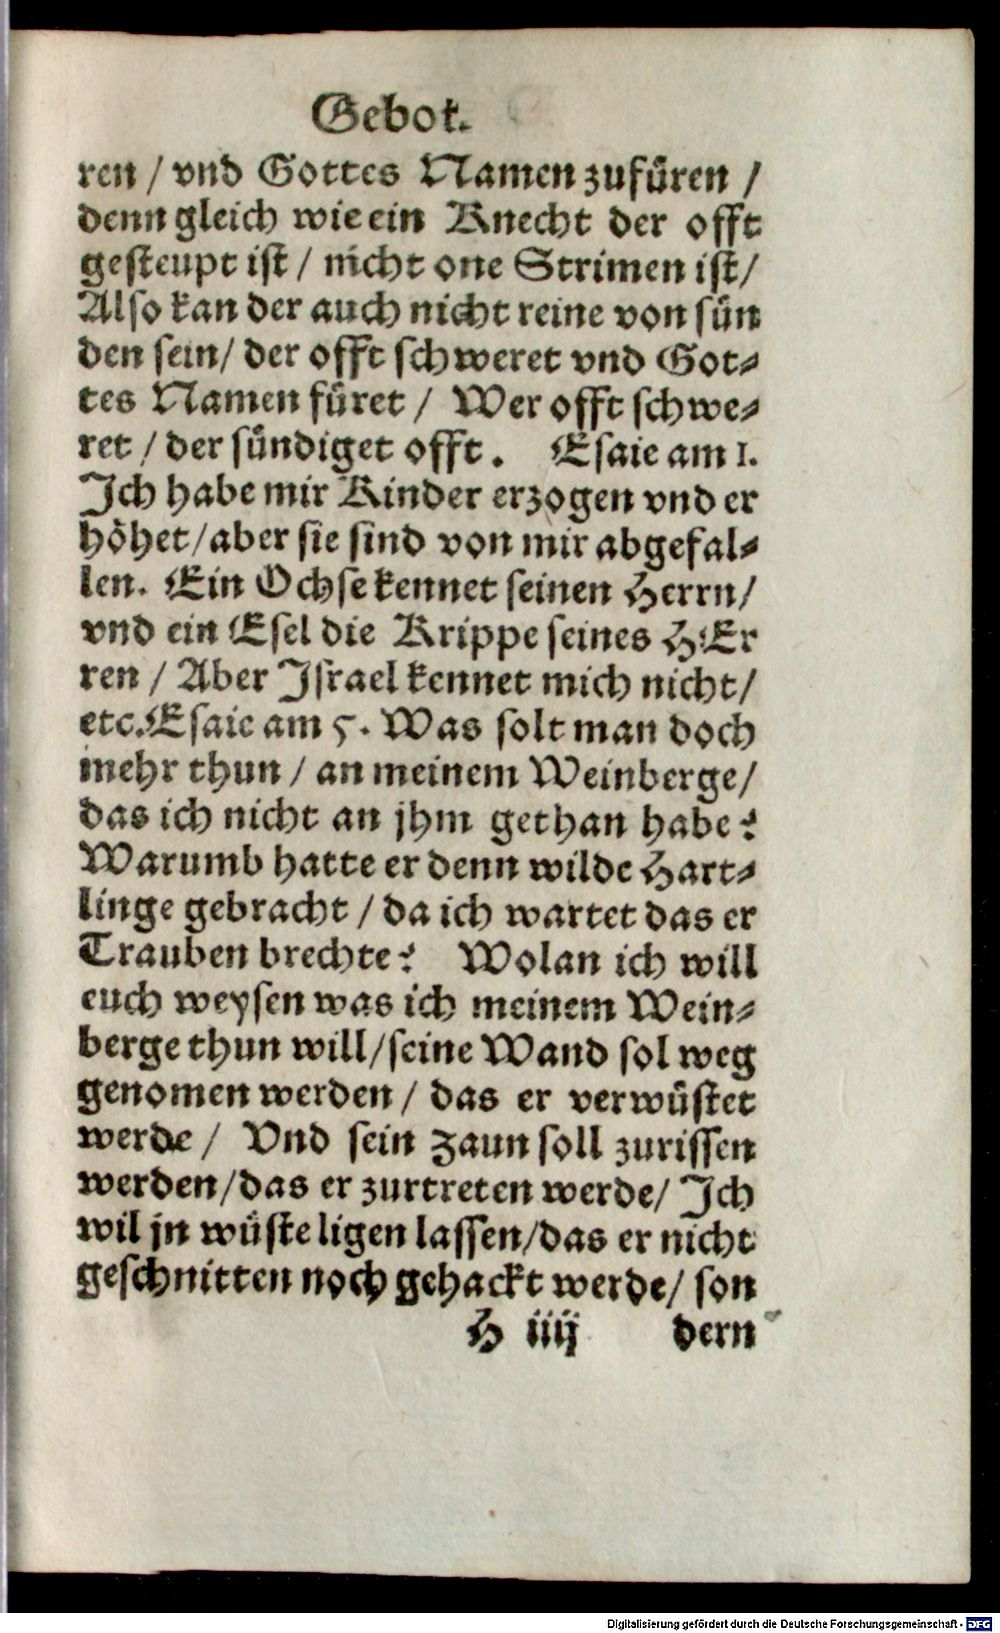 Gebot.
ren / vnd Gottes Namen zufüren /
denn gleich wie ein Knecht der offt
gesteupt ist / nicht one Strimen ist /
Also kan der auch nicht reine von sün
den sein / der offt schweret vnd Got⸗
tes Namen füret / Wer offt schwe⸗
ret / der sündiget offt. Esaie am 1.
Ich habe mir Kinder erzogen vnd er
höhet / aber sie sind von mir abgefal⸗
len. Ein Ochse kennet seinen Herrn /
vnd ein Esel die Krippe seines HEr
ren / Aber Israel kennet mich nicht /
etc. Esaie am 5. Was solt man doch
mehr thun / an meinem Weinberge /
das ich nicht an jhm gethan habe?
Warumb hatte er denn wilde Hart⸗
linge gebracht / da ich wartet das er
Trauben brechte? Wolan ich will
euch weysen was ich meinem Wein⸗
berge thun will / seine Wand sol weg
genomen werden / das er verwüstet
werde / Vnd sein zaun soll zurissen
werden / das er zurtreten werde / Ich
wil jn wüste ligen lassen / das er nicht
geschnitten noch gehackt werde / son
H iiij dern
Digitalisierung gefördert durch die Deutsche Forschungsgemeinschaft - DFG